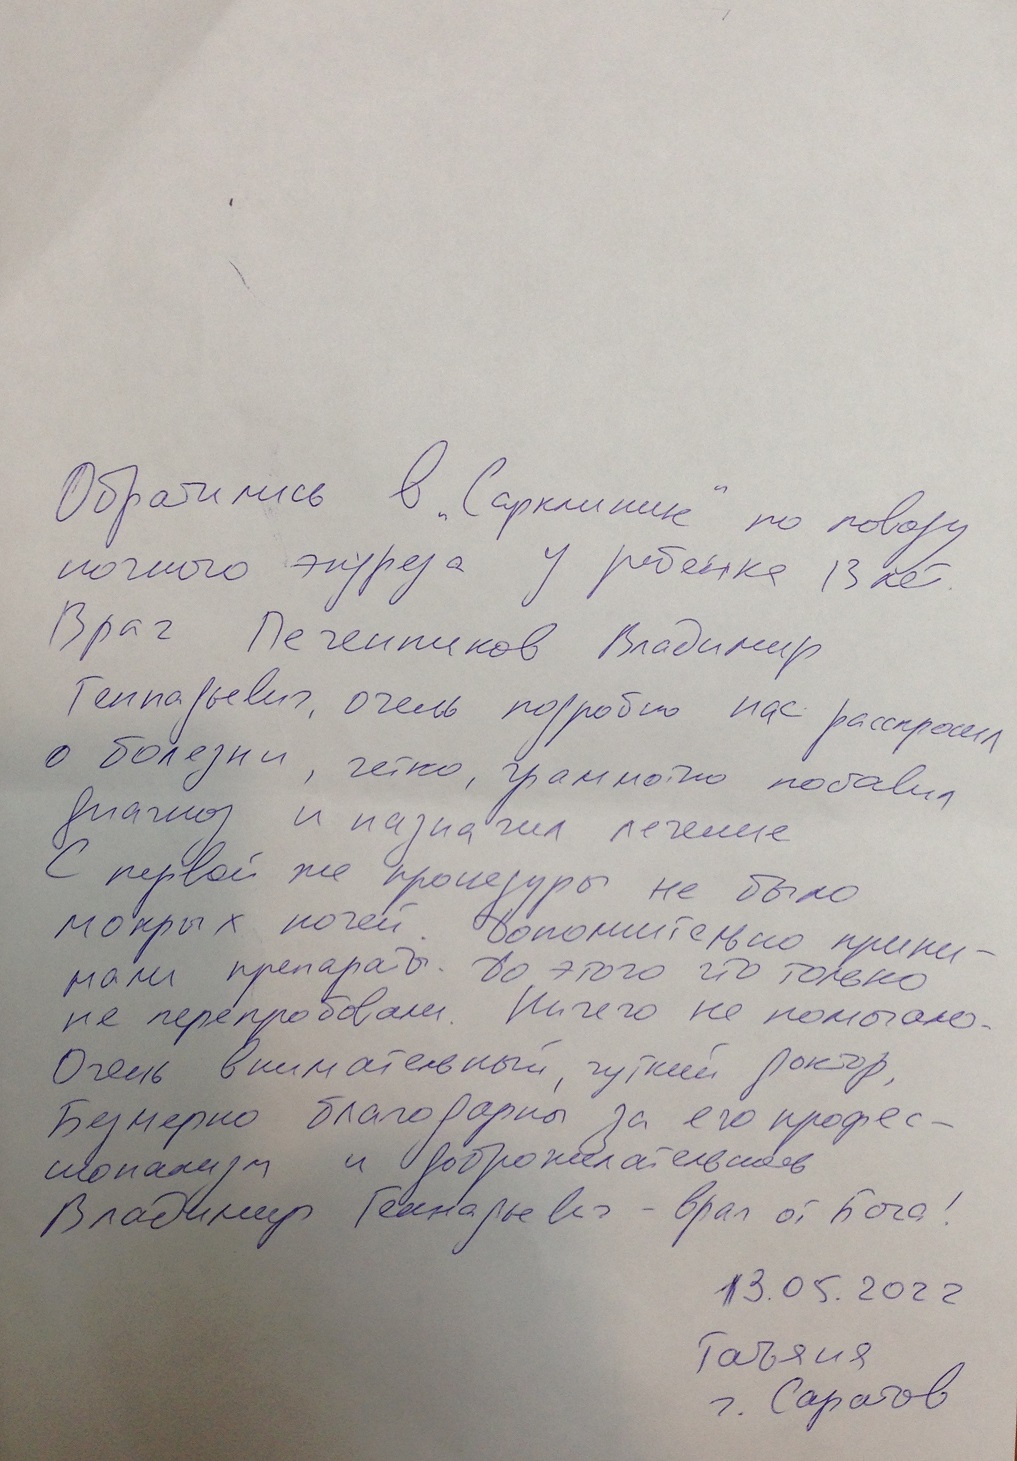 Обратились в „Сарклиник“ по поводу
ночного энуреза у ребенка 13 лет.
Врач Печенников Владимир
Геннадьевич, очень подробно нас расспросил
о болезни, четко, грамотно поставил
диагноз и назначил лечение
С первой же процедуры не было
мокрых ночей. Дополнительно прини-
мали препараты. До этого что только
не перепробовали. Ничего не помогало.
Очень внимательный, чуткий доктор,
Безмерно благодарны за его профес-
сионализм и доброжелательность
Владимир Геннадьевич - врач от Бога!
13.05.2022
Татьяна
г. Саратов